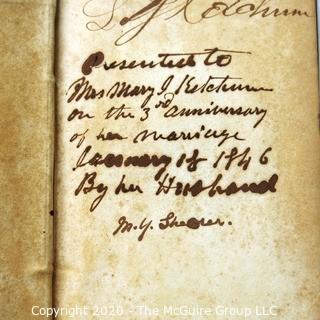 S J Ketchum
Presented to
Mrs Mary J. Ketchum
on the 3rd anniversary
of her marriage
January 18 1846
By her Husband
M. Y. Shearer.
Copyright 2020 - The McGuire Group LLC